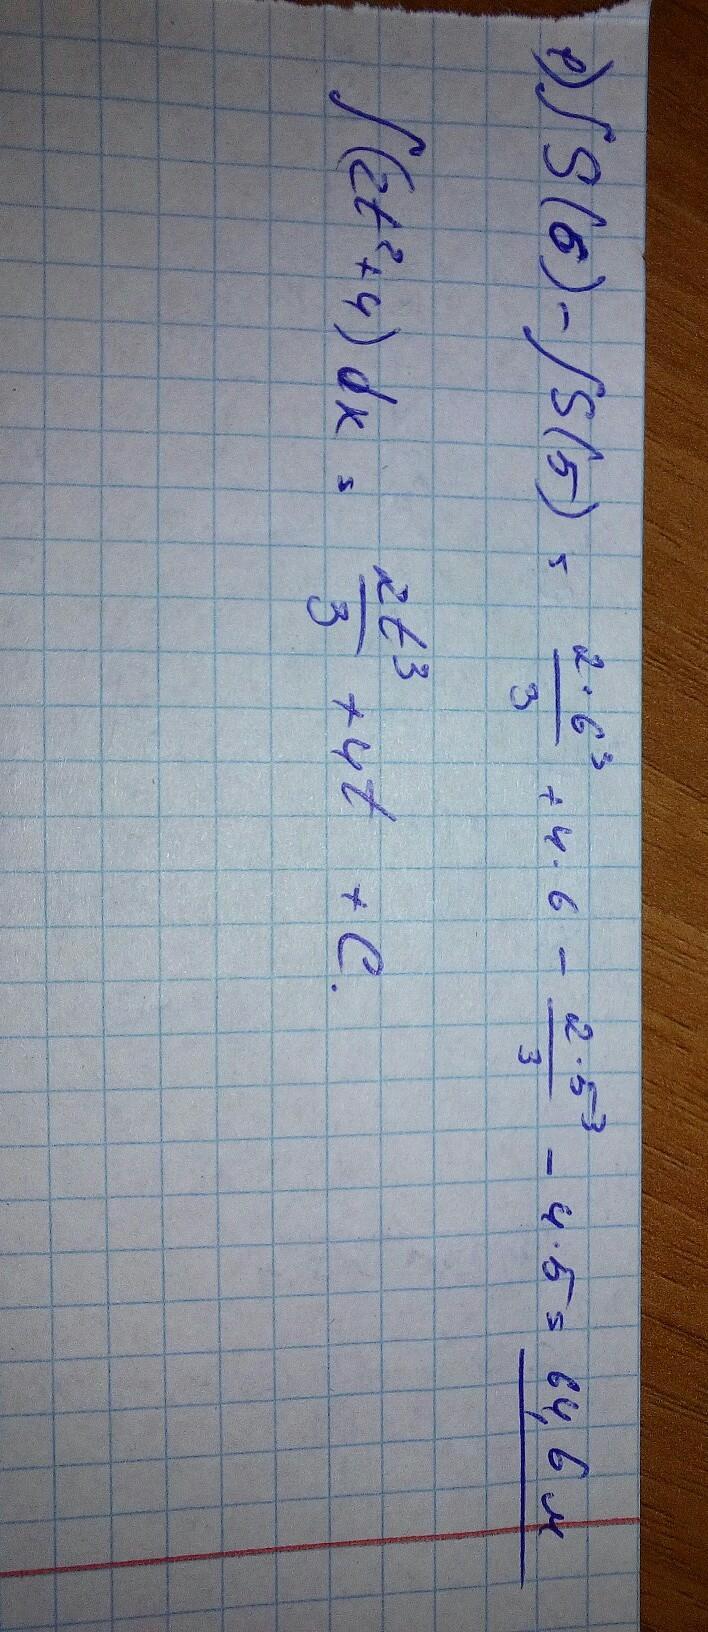 е) ∫S(6) - ∫S(5) = 2·6³/3 + 4·6 - 2·5³/3 - 4·5 = 64,6 м
∫(2t²+4) dx = 2t³/3 + 4t + C.